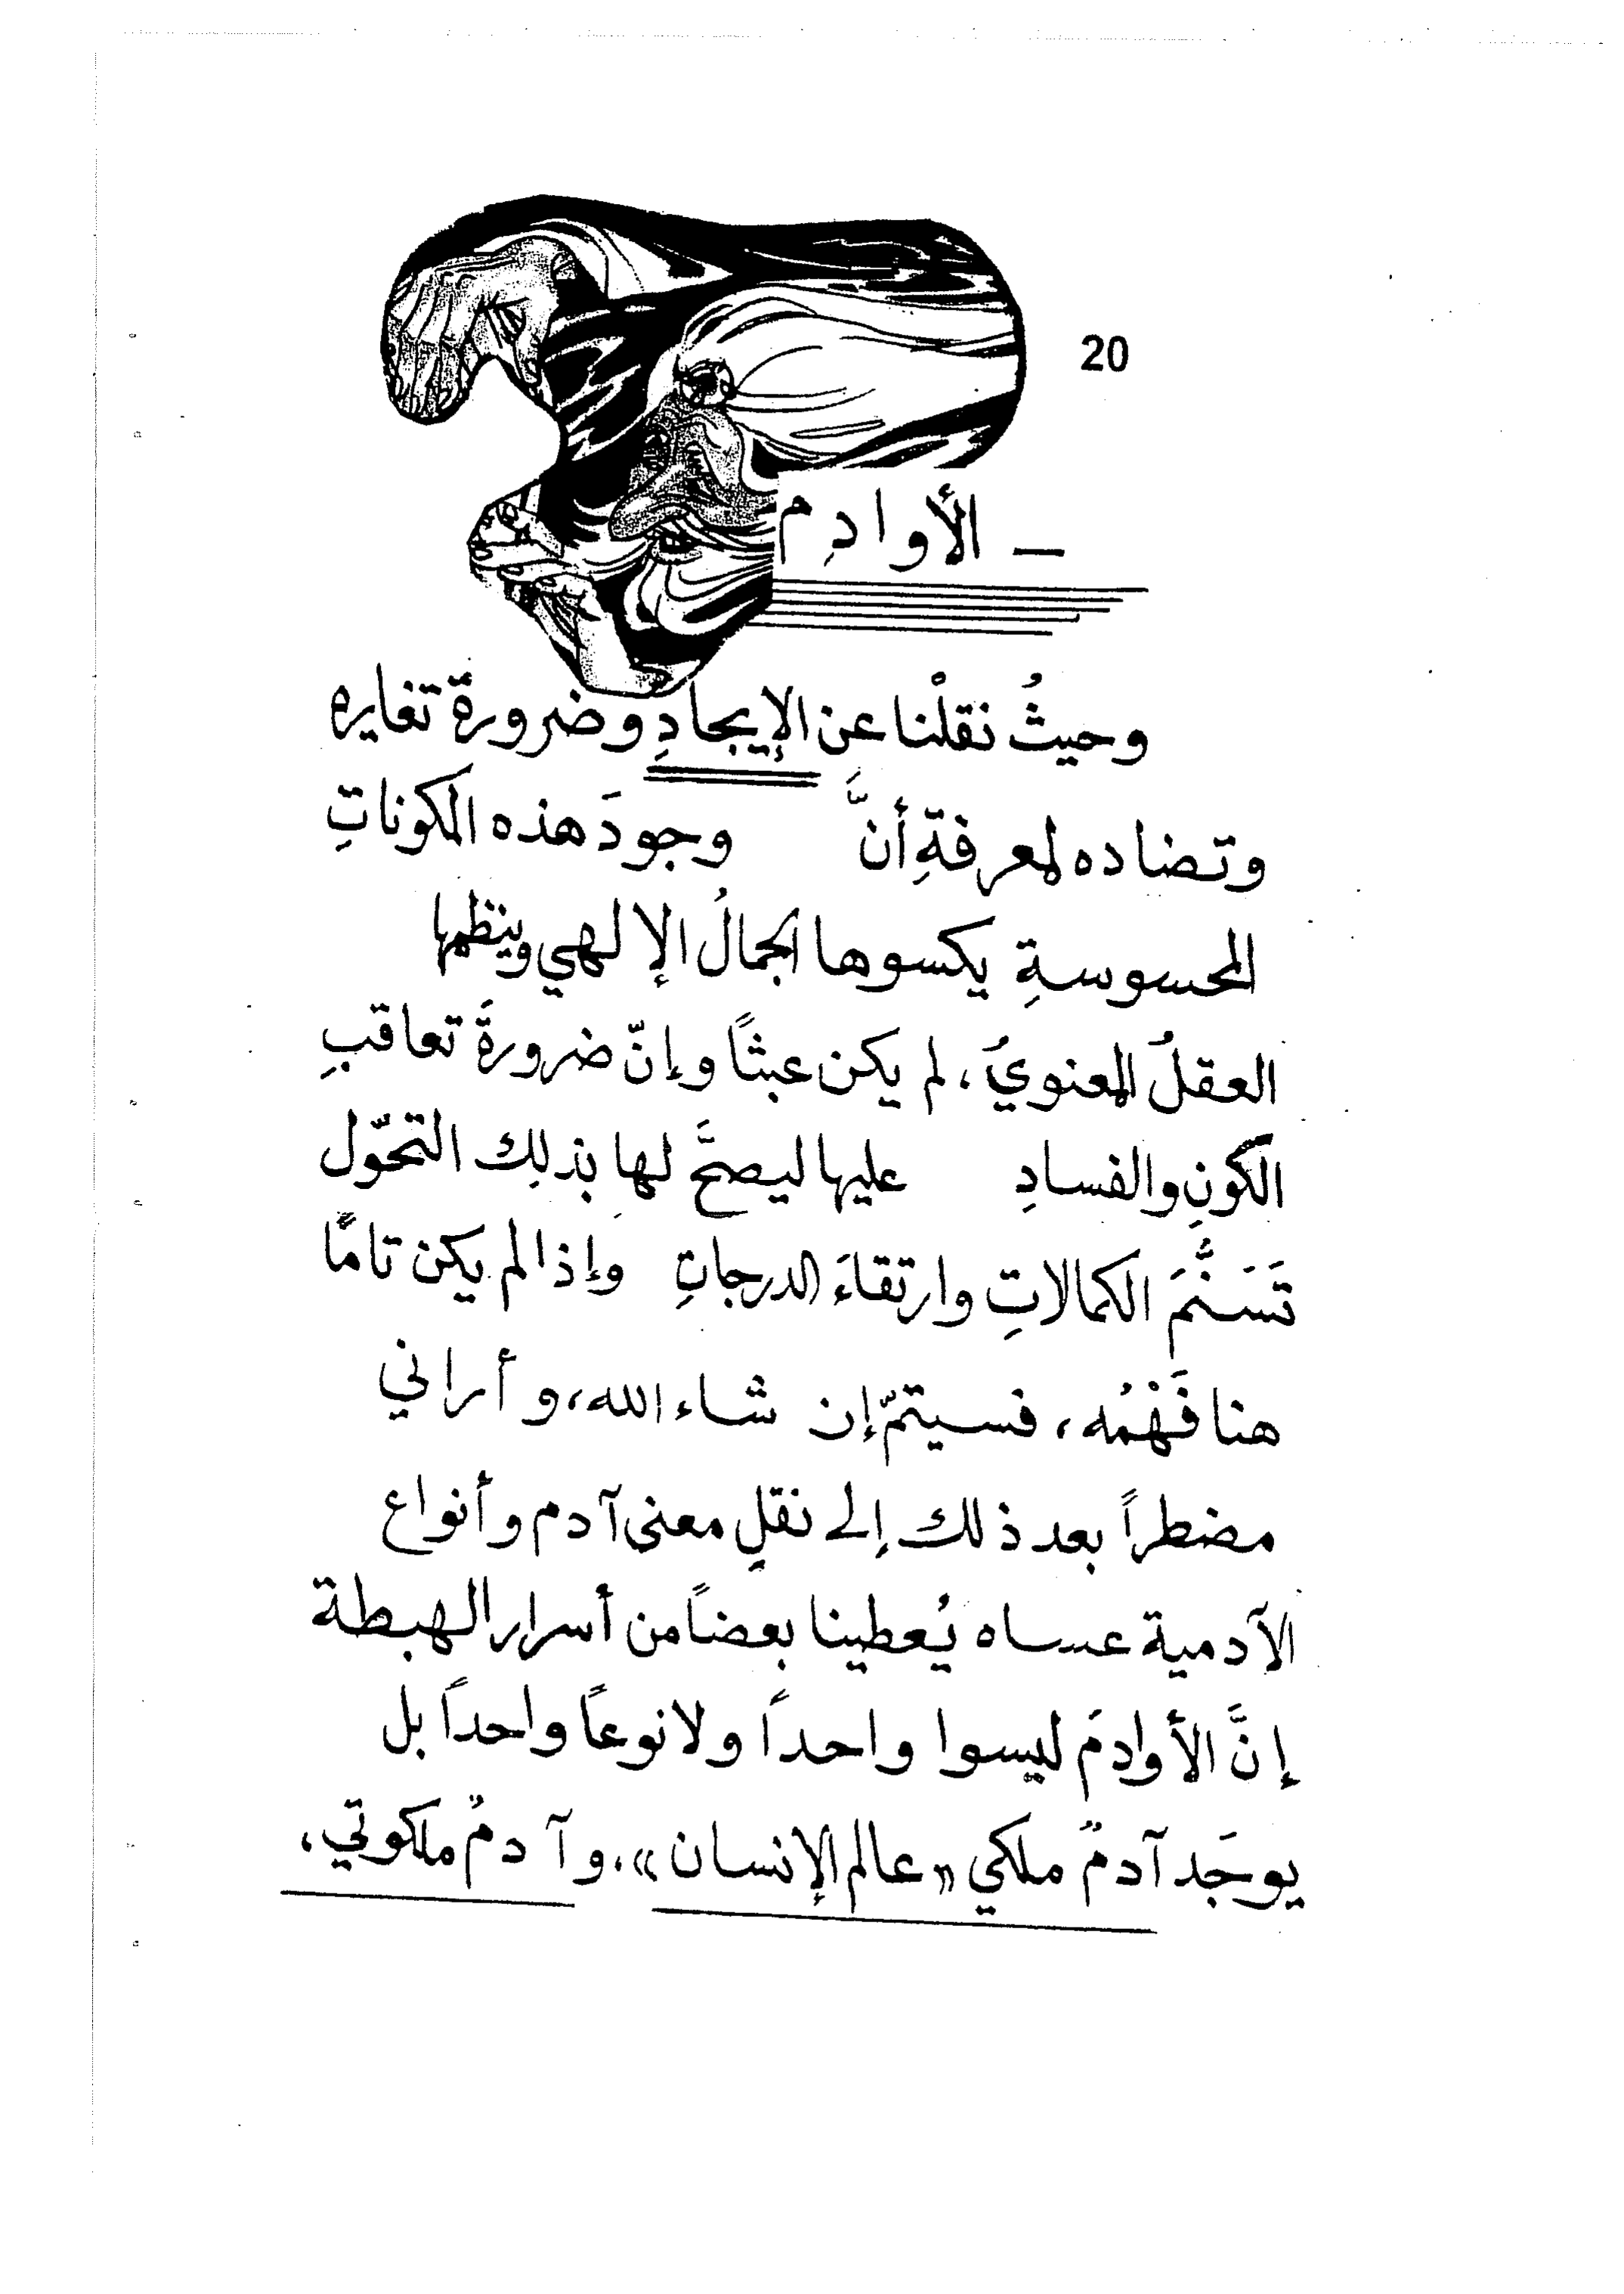 20
— الأوادِم
وحيثُ نقلْنا عن الإيجادِ وضرورة تغايره
وتضاده لمعرفةِ أنَّ وجودَ هذه المكوناتِ
المحسوسةِ يكسوها الجمالُ الإلهي وينظمها
العقلُ المعنويُ، لم يكن عبثاً وإنّ ضرورةَ تعاقبِ
الكونِ والفسادِ عليها ليصحَّ لها بذلِك التحوّل
تَسَنُّمَ الكمالاتِ وارتقاءَ الدرجاتِ وإذا لم يكن تامًّا
هنا فَهْمُه، فسيتمّ إن شاء الله، وأراني
مضطراً بعد ذلك إلى نقلِ معنى آدم وأنواع
الآدمية عساه يُعطينا بعضاً من أسرار الهبطة
إنَّ الأوادمَ ليسوا واحداً ولا نوعاً واحداً بل
يوجَد آدمٌ ملكي «عالم الإنسان»، وآدمٌ ملكوتي،